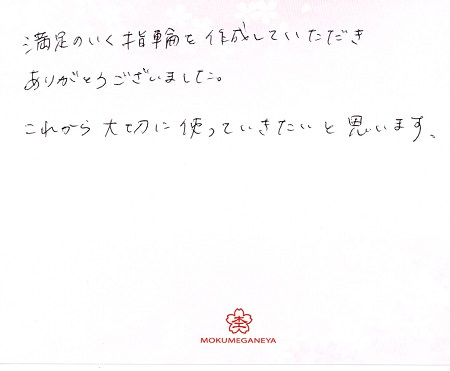 満足のいく指輪を作成していただき
ありがとうございました。
これから大切に使っていきたいと思います。
MOKUMEGANEYA